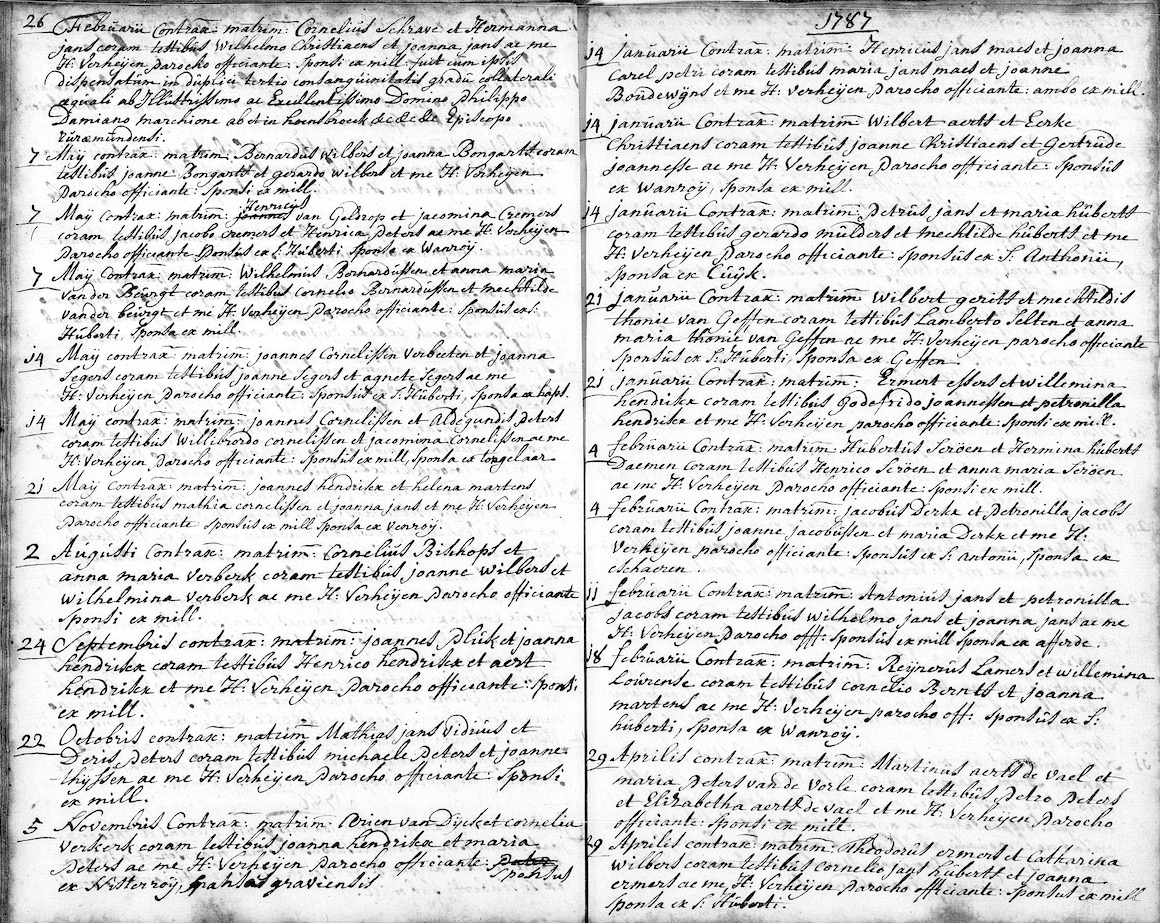 26 Februarii Contrax: matrim: Cornelius Schrave et Hermanna
jans coram testibus Wilhelmo Christiaens et joanna jans ac me
H: Verheijen parocho officiante: sponsi ex mill. fuit cum ipsis
dispensatum in duplici tertio consanguinitatis gradu collaterali
æquali ab Illustrissimo ac Excellentissimo Domino philippo
Damiano marchione ab et in hoensbroeck &c &c &c Episcopo
ruræmundensi.
7 Maij contrax: matrim: Bernardus Wilbers et joanna Bongarts coram
testibus joanne Bongarts et gerardo wilbers et me H. Verheijen
parocho officiante: sponsi ex mill.
Henricus
7 Maij Contrax: matrim: joannes van Geldrop et jacomina Cremers
coram testibus jacobo Cremers et Henrica peters ac me H: Verheijen
parocho officiante sponsus ex S: Huberti sponsa ex Wanroij.
7 Maij Contrax: matrim: Wilhelmus Bernardussen et anna maria
van der Beurgt coram testibus Cornelio Bernardussen et mechtilde
van der beurgt et me H: Verheijen parocho officiante: sponsus ex S:
Huberti, sponsa ex mill.
14 Maij contrax: matrim: joannes Cornelissen verbeeten et joanna
Segers coram testibus joanne Segers et agnete Segers ac me
H: Verheijen parocho officiante: sponsus ex S. Huberti, sponsa ex haps.
14 Maij contrax: matrim: joannes Cornelissen et Aldegundis peters
coram testibus Willibrordo cornelissen et jacomina Cornelissen ac me
H: Verheijen parocho officiante: sponsus ex mill, sponsa ex tongelaar
21 Maij Contrax: matrim: joannes hendrikx et helena martens
coram testibus mathia cornelissen et joanna jans et me H: Verheijen
parocho officiante sponsus ex mill sponsa ex venroij.
2 Augusti Contrax: matrim: Cornelius Bishops et
anna maria verberk coram testibus joanne wilbers et
wilhelmina verberk ac me H: Verheijen parocho officiante
sponsi ex mill.
24 Septembris contrax: matrim: joannes pluk et joanna
hendrikx coram testibus Henrico hendrikx et aert
hendrikx et me H: Verheijen parocho officiante: sponsi
ex mill.
22 Octobris contrax: matrim Mathias jans vidius et
Deris peters coram testibus michaele peters et joanne
thijssen ac me H: Verheijen parocho officiante: sponsi
ex mill.
5 Novembris Contrax: matrim: Arien van Dijck et cornelia
verkerk coram testibus joanna hendrikx et maria
peters ac me H: Verheijen parocho officiante: sponsus
ex Nisterroij, sponsa graviensis
1787
14 januarii Contrax: matrim: Henricus jans maes et joanna
Carel petri coram testibus maria jans maes et joanne
Boudewijns et me H: Verheijen parocho officiante: ambo ex mill.
14 januarii Contrax: matrim: Wilbert aerts et Eerke
Christiaens coram testibus joanne Christiaens et Gertrude
joannesse ac me H: Verheijen parocho officiante: sponsus
ex Wanroij, sponsa ex mill.
14 januarii Contrax: matrim: petrus jans et maria huberts
coram testibus gerardo mulders et mechtilde huberts et me
H: Verheijen parocho officiante: sponsus ex S: Anthonii,
sponsa ex Cuijk.
21 januarii Contrax: matrim Wilbert gerits et mechtildis
thonie van Geffen coram testibus Lamberto Selten et anna
maria thonie van Geffen ac me H: Verheijen parocho officiante
sponsus ex S: Huberti sponsa ex Geffen
21 januarii Contrax: matrim: Ermert essers et willemina
hendrikx coram testibus Godefrido joannessen et petronilla
hendrikx et me H: Verheijen parocho officiante: sponsi ex mill.
4 februarii Contrax: matrim Hubertus Seroen et Hermina huberts
Daemen coram testibus Henrico Seroen et anna maria Seroen
ac me H: Verheijen parocho officiante: sponsi ex mill.
4 februarii Contrax: matrim: jacobus Derkx et petronilla jacobs
coram testibus joanne jacobussen et maria Derkx et me H:
Verheijen parocho officiante: sponsus ex S: antonii, sponsa ex
eschaeren.
11 februarii Contrax: matrim: Antonius jans et petronilla
jacobs coram testibus wilhelmo jans et joanna jans ac me
H: Verheijen parocho off: sponsus ex mill sponsa ex afferde.
18 februarii Contrax: matrim: Reijnerus Lamers et willemina
Lourense coram testibus cornelio Bernts et joanna
martens ac me H: Verheijen parocho off: sponsus ex S:
huberti, sponsa ex Wanroij.
29 Aprilis contrax: matrim: Martinus aerts de vael et
maria peters van de vorle coram testibus petro peters
et Elizabetha aerts de vael et me H: Verheijen parocho
officiante: sponsi ex mill.
29 Aprilis contrax: matrim: Theodorus ermers et Catharina
wilbers coram testibus Cornelio jans huberts et joanna
ermers ac me H: Verheijen parocho officiante: sponsus ex mill
sponsa ex S: Huberti.